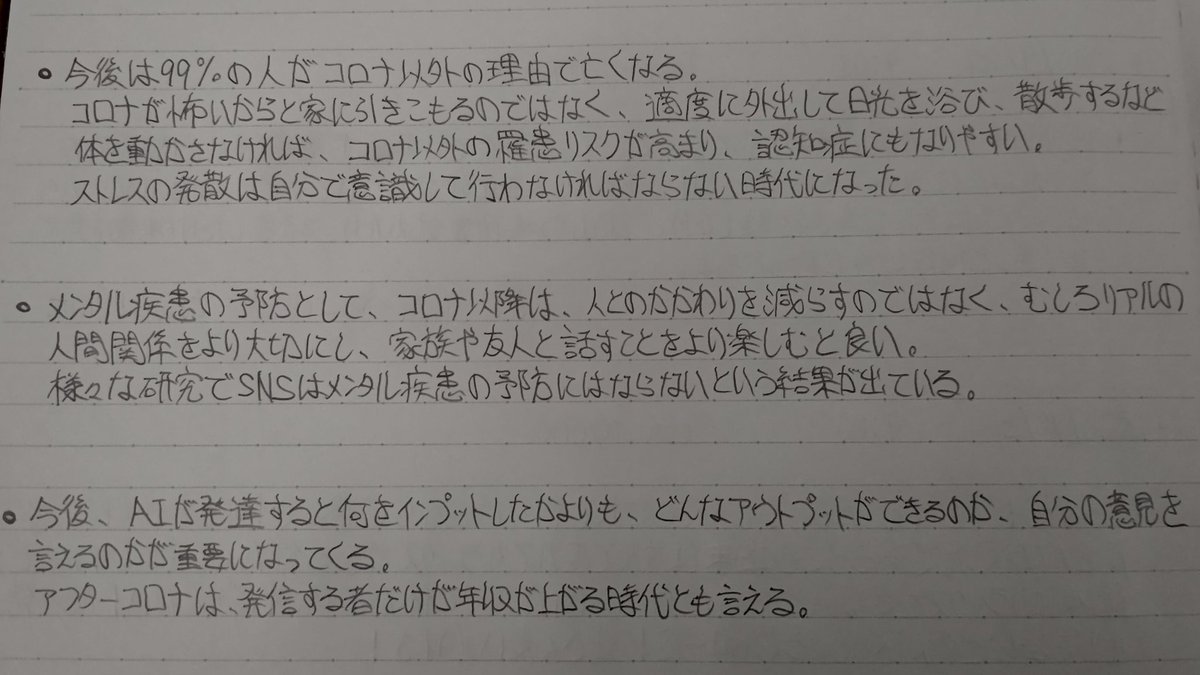 • 今後は99%の人がコロナ以外の理由で亡くなる。
コロナが怖いからと家に引きこもるのではなく、適度に外出して日光を浴び、散歩するなど
体を動かさなければ、コロナ以外の罹患リスクが高まり、認知症にもなりやすい。
ストレスの発散は自分で意識して行わなければならない時代になった。
• メンタル疾患の予防として、コロナ以降は、人とのかかわりを減らすのではなく、むしろリアルの
人間関係をより大切にし、家族や友人と話すことをより楽しむと良い。
様々な研究でSNSはメンタル疾患の予防にはならないという結果が出ている。
• 今後、AIが発達すると何をインプットしたかよりも、どんなアウトプットができるのか、自分の意見を
言えるのかが重要になってくる。
アフターコロナは、発信する者だけが年収が上がる時代とも言える。